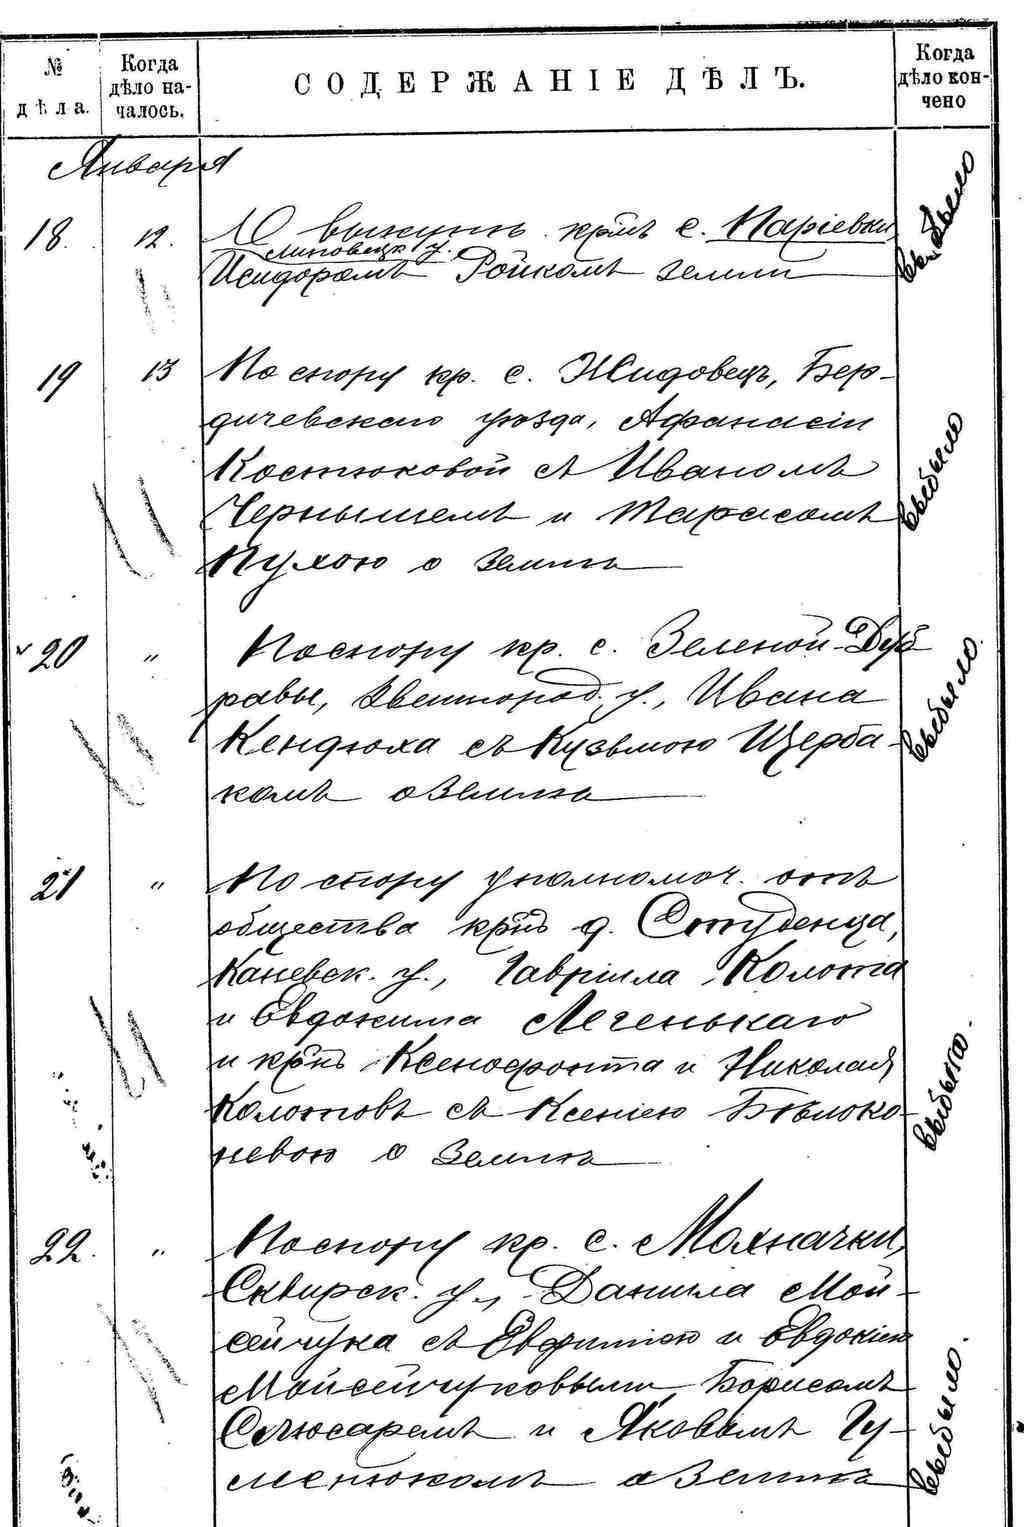 № дѣла.
Когда дѣло началось.
СОДЕРЖАНІЕ ДѢЛЪ.
Когда дѣло кончено
Января
18. 12. О выкупѣ крмъ с. Маріевки,
Липовецк. у.
Исидоромъ Ройкомъ земли
выбыло
19 13 По спору кр. с. Жидовецъ, Бер-
дичевскаго уѣзда, Афанасіи
Костюковой съ Иваномъ
Чернышемъ и Тарасомъ
Пухою о землѣ
выбыло
20 " По спору кр. с. Зеленой-Дуб-
равы, Звенигород. у., Ивана
Кендюха съ Кузьмою Щерба-
комъ о землѣ
выбыло.
21 " По спору уполномоч. отъ
общества крнъ д. Студенца,
Каневск. у., Гавріила Колота
и Евдокима Легенькаго
и крнъ Ксенофонта и Николая
Колотовъ съ Ксеніею Бѣлоко-
невою о землѣ
выбыло.
22. " По спору кр. с. Мохначки,
Сквирск. у., Данила Мой-
сейчука съ Евфиміею и Евдокіею
Мойсейчуковыми, Борисомъ
Слюсаремъ и Яковомъ Гу-
менюкомъ о землѣ
выбыло.